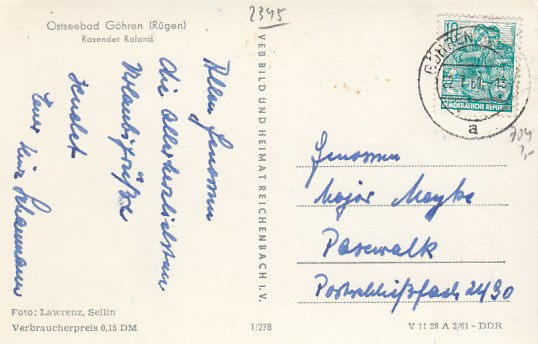 Ostseebad Göhren (Rügen)
Rasender Roland
2345
Allen Genossen
die allerherzlichsten
Urlaubsgrüße
sendet
Euer
VEB BILD UND HEIMAT REICHENBACH I.V.
10
DEMOKRATISCHE REPUBLIK
GÖHREN
a
704
1,-
Genossen
Major Meyke
Pasewalk
Postschließfach 2490
Foto: Lawrenz, Sellin
Verbraucherpreis 0,15 DM
1/278
V 11 28 A 3/61 - DDR